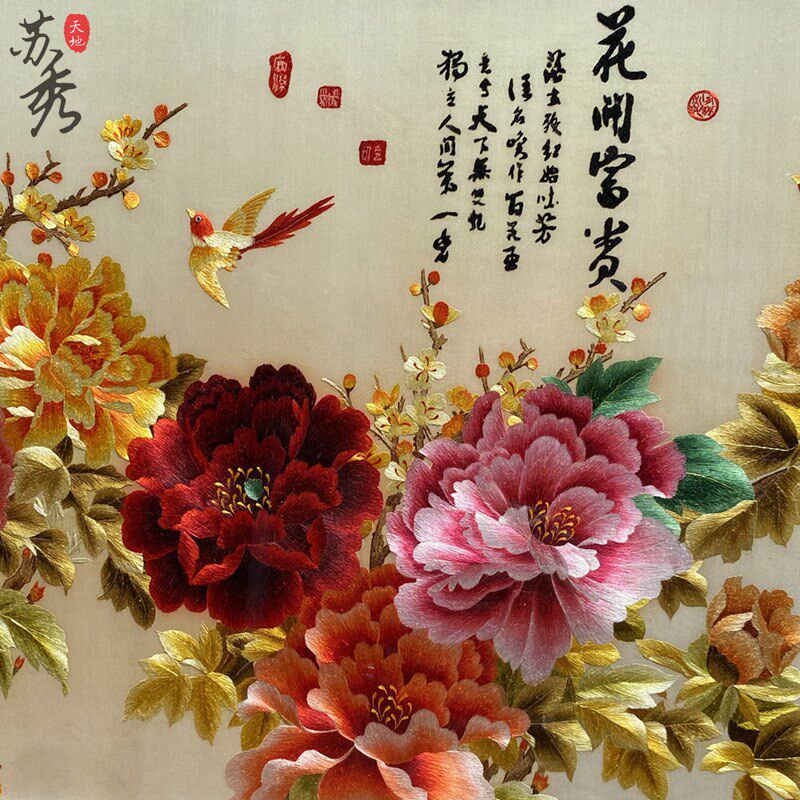 苏秀
天地
花開富贵
落盡残红始吐芳
佳名唤作百花王
竞夸天下無双艳
獨立人间第一香